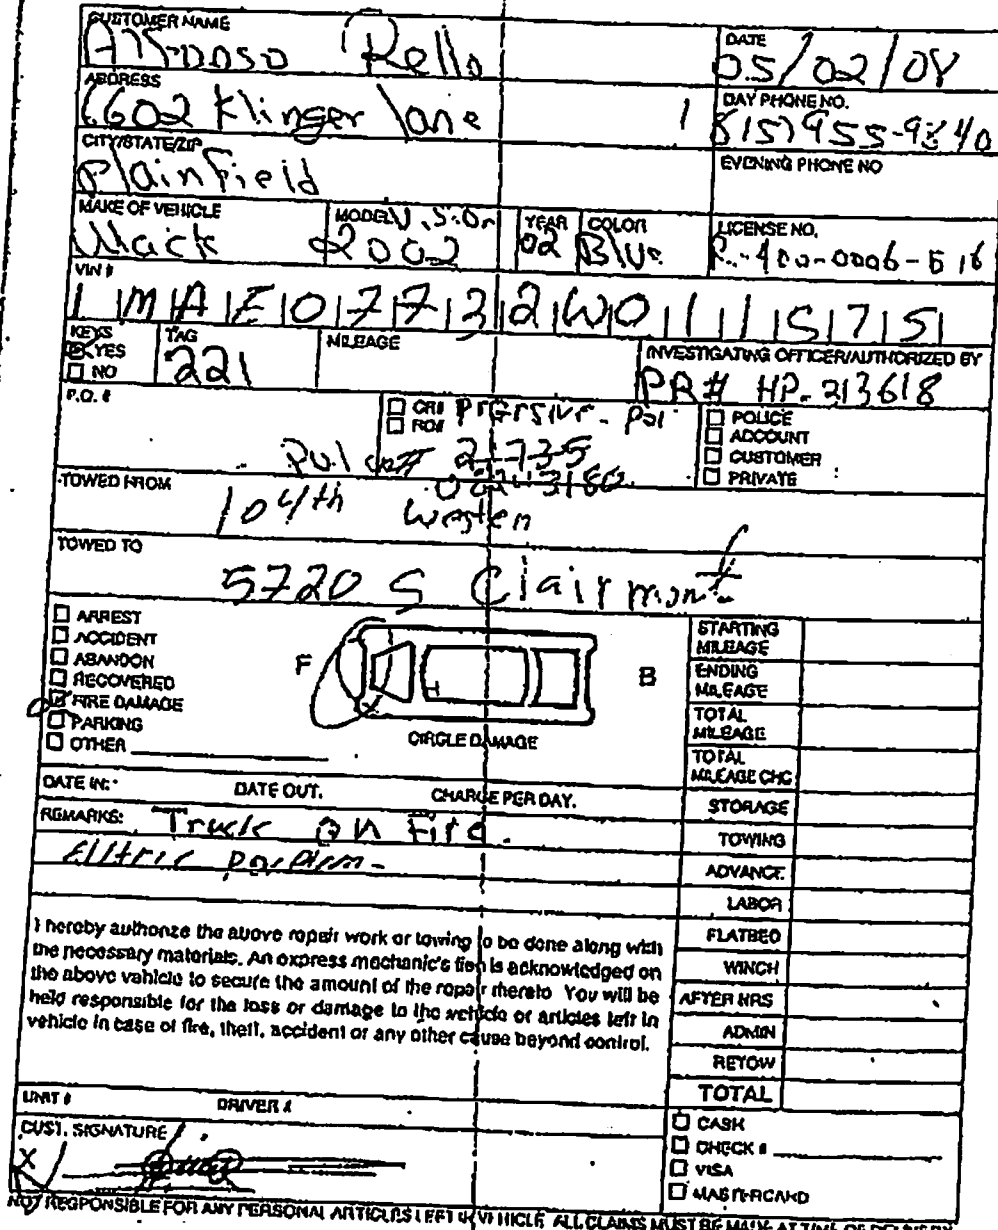 CUSTOMER NAME
Rello
DATE
05/02/08
ADDRESS
6602 Klinger lane 1
DAY PHONE NO.
CITY/STATE/ZIP
Plainfield
EVENING PHONE NO
MAKE OF VEHICLE
Mack
MODEL
2002
YEAR
02
COLOR
Blue
LICENSE NO.
VIN #
1 M A E 0 7 7 3 2 W 0 1 1 1 5 7 5
KEYS
YES
NO
TAG
221
MILEAGE
INVESTIGATING OFFICER/AUTHORIZED BY
PR# HP-213618
P.O. #
CR#
RO#
POLICE
ACCOUNT
CUSTOMER
PRIVATE
TOWED FROM
104th Westen
TOWED TO
5720 S Clairmont
ARREST
ACCIDENT
ABANDON
RECOVERED
FIRE DAMAGE
PARKING
OTHER
F
B
CIRCLE DAMAGE
STARTING MILEAGE
ENDING MILEAGE
TOTAL MILEAGE
TOTAL MILEAGE CHG
DATE IN:
DATE OUT.
CHARGE PER DAY.
STORAGE
REMARKS: Truck on Fire.
TOWING
ADVANCE
LABOR
I hereby authorize the above repair work or towing to be done along with
the necessary materials. An express mechanic's lien is acknowledged on
the above vehicle to secure the amount of the repair thereto You will be
held responsible for the loss or damage to the vehicle or articles left in
vehicle in case of fire, theft, accident or any other cause beyond control.
FLATBED
WINCH
AFTER HRS
ADMIN
RETOW
TOTAL
UNIT #
DRIVER #
CUST. SIGNATURE
X
CASH
CHECK #
VISA
MASTERCARD
NOT RESPONSIBLE FOR ANY PERSONAL ARTICLES LEFT IN VEHICLE ALL CLAIMS MUST BE MADE AT TIME OF DELIVERY